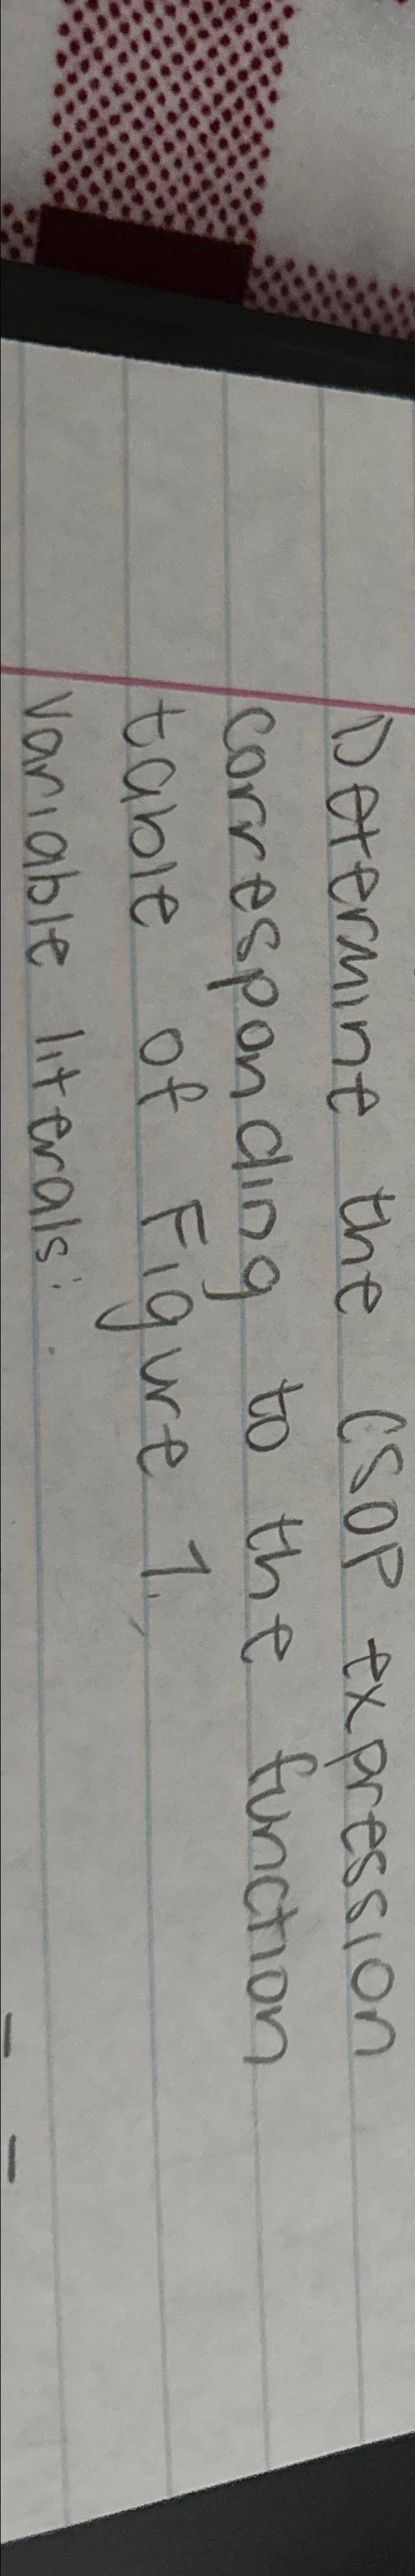 Determine the CSOP expression
corresponding to the function
table of Figure 1.
variable literals: